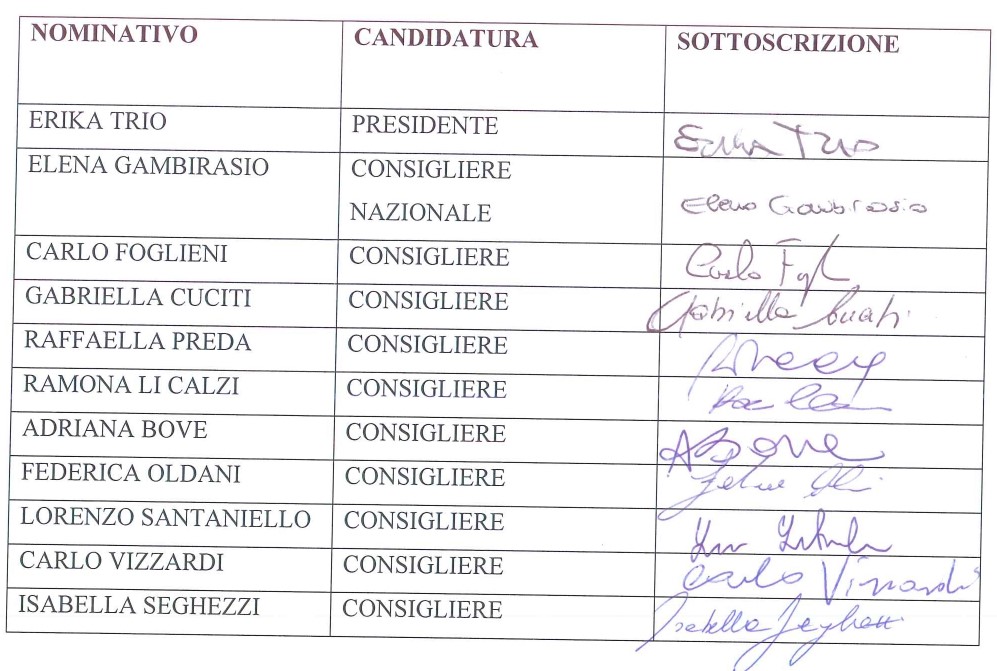 NOMINATIVO CANDIDATURA SOTTOSCRIZIONE
ERIKA TRIO PRESIDENTE Erika Trio
ELENA GAMBIRASIO CONSIGLIERE
NAZIONALE Elena Gambirasio
CARLO FOGLIENI CONSIGLIERE Carlo
GABRIELLA CUCITI CONSIGLIERE Gabriella Cuciti
RAFFAELLA PREDA CONSIGLIERE
RAMONA LI CALZI CONSIGLIERE
ADRIANA BOVE CONSIGLIERE ABove
FEDERICA OLDANI CONSIGLIERE
LORENZO SANTANIELLO CONSIGLIERE
CARLO VIZZARDI CONSIGLIERE Carlo Vizzardi
ISABELLA SEGHEZZI CONSIGLIERE Isabella Seghezzi